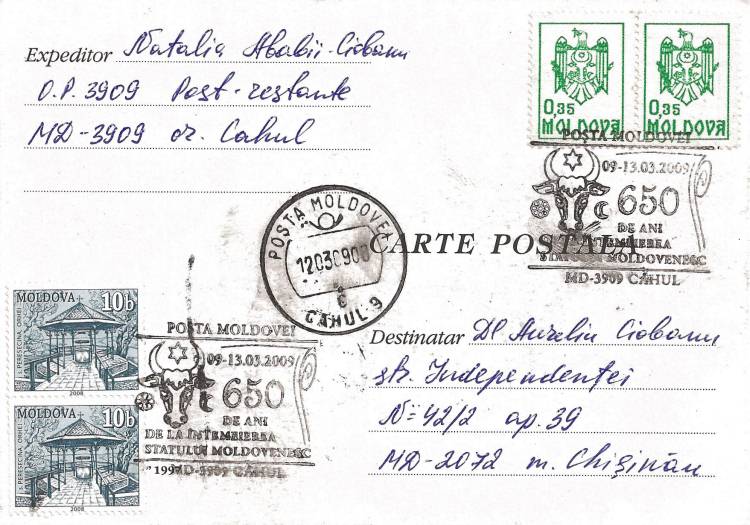 Expeditor Natalia Ababii-Ciobanu
O.P. 3909 Post-restante
MD-3909 or. Cahul
0,35
MOLDOVA
0,35
MOLDOVA
POȘTA MOLDOVEI
09-13.03.2009
650
DE ANI
ÎNTEMEIEREA
STATULUI MOLDOVENESC
MD-3909 CAHUL
POȘTA MOLDOVEI
12030900
c
CAHUL-9
CARTE POȘTALĂ
MOLDOVA
10b
2008
MOLDOVA
10b
2008
POȘTA MOLDOVEI
09-13.03.2009
650
DE ANI
DE LA ÎNTEMEIEREA
STATULUI MOLDOVENESC
" 1997
MD-3909 CAHUL
Destinatar Dl Aureliu Ciobanu
str. Independenței
N=42/2 ap. 39
MD-2072 m. Chișinău